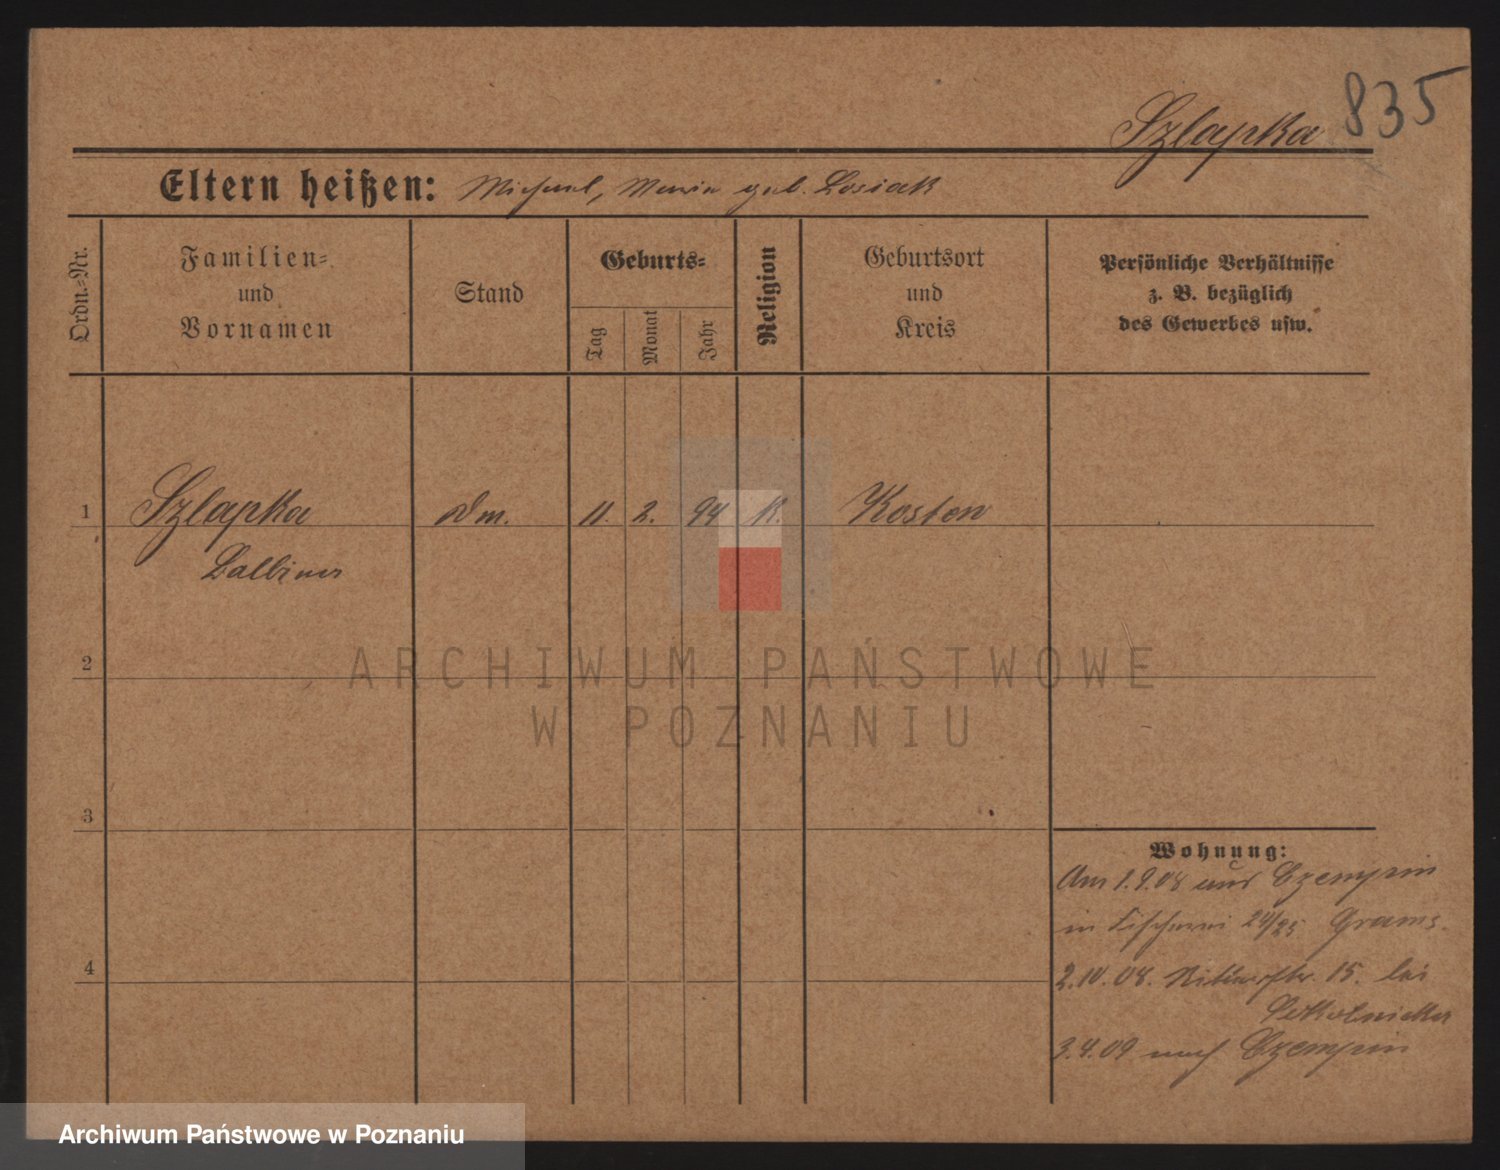 835
Szlapka
Eltern heißen: Michael, Maria geb. Losiak
Ordn.-Nr.
Familien-
und
Vornamen
Stand
Geburts-
Tag
Monat
Jahr
Religion
Geburtsort
und
Kreis
Persönliche Verhältnisse
z. B. bezüglich
des Gewerbes usw.
1 Szlapka Dm. 11. 2. 94 K. Kosten
Balbina
2
3
4
Wohnung:
Am 1.9.08 aus Czempin
in Fischerei 24/25 Grams.
2.10.08. Ritterstr. 15. bei
3.4.09 nach Czempin
ARCHIWUM PAŃSTWOWE
W POZNANIU
Archiwum Państwowe w Poznaniu